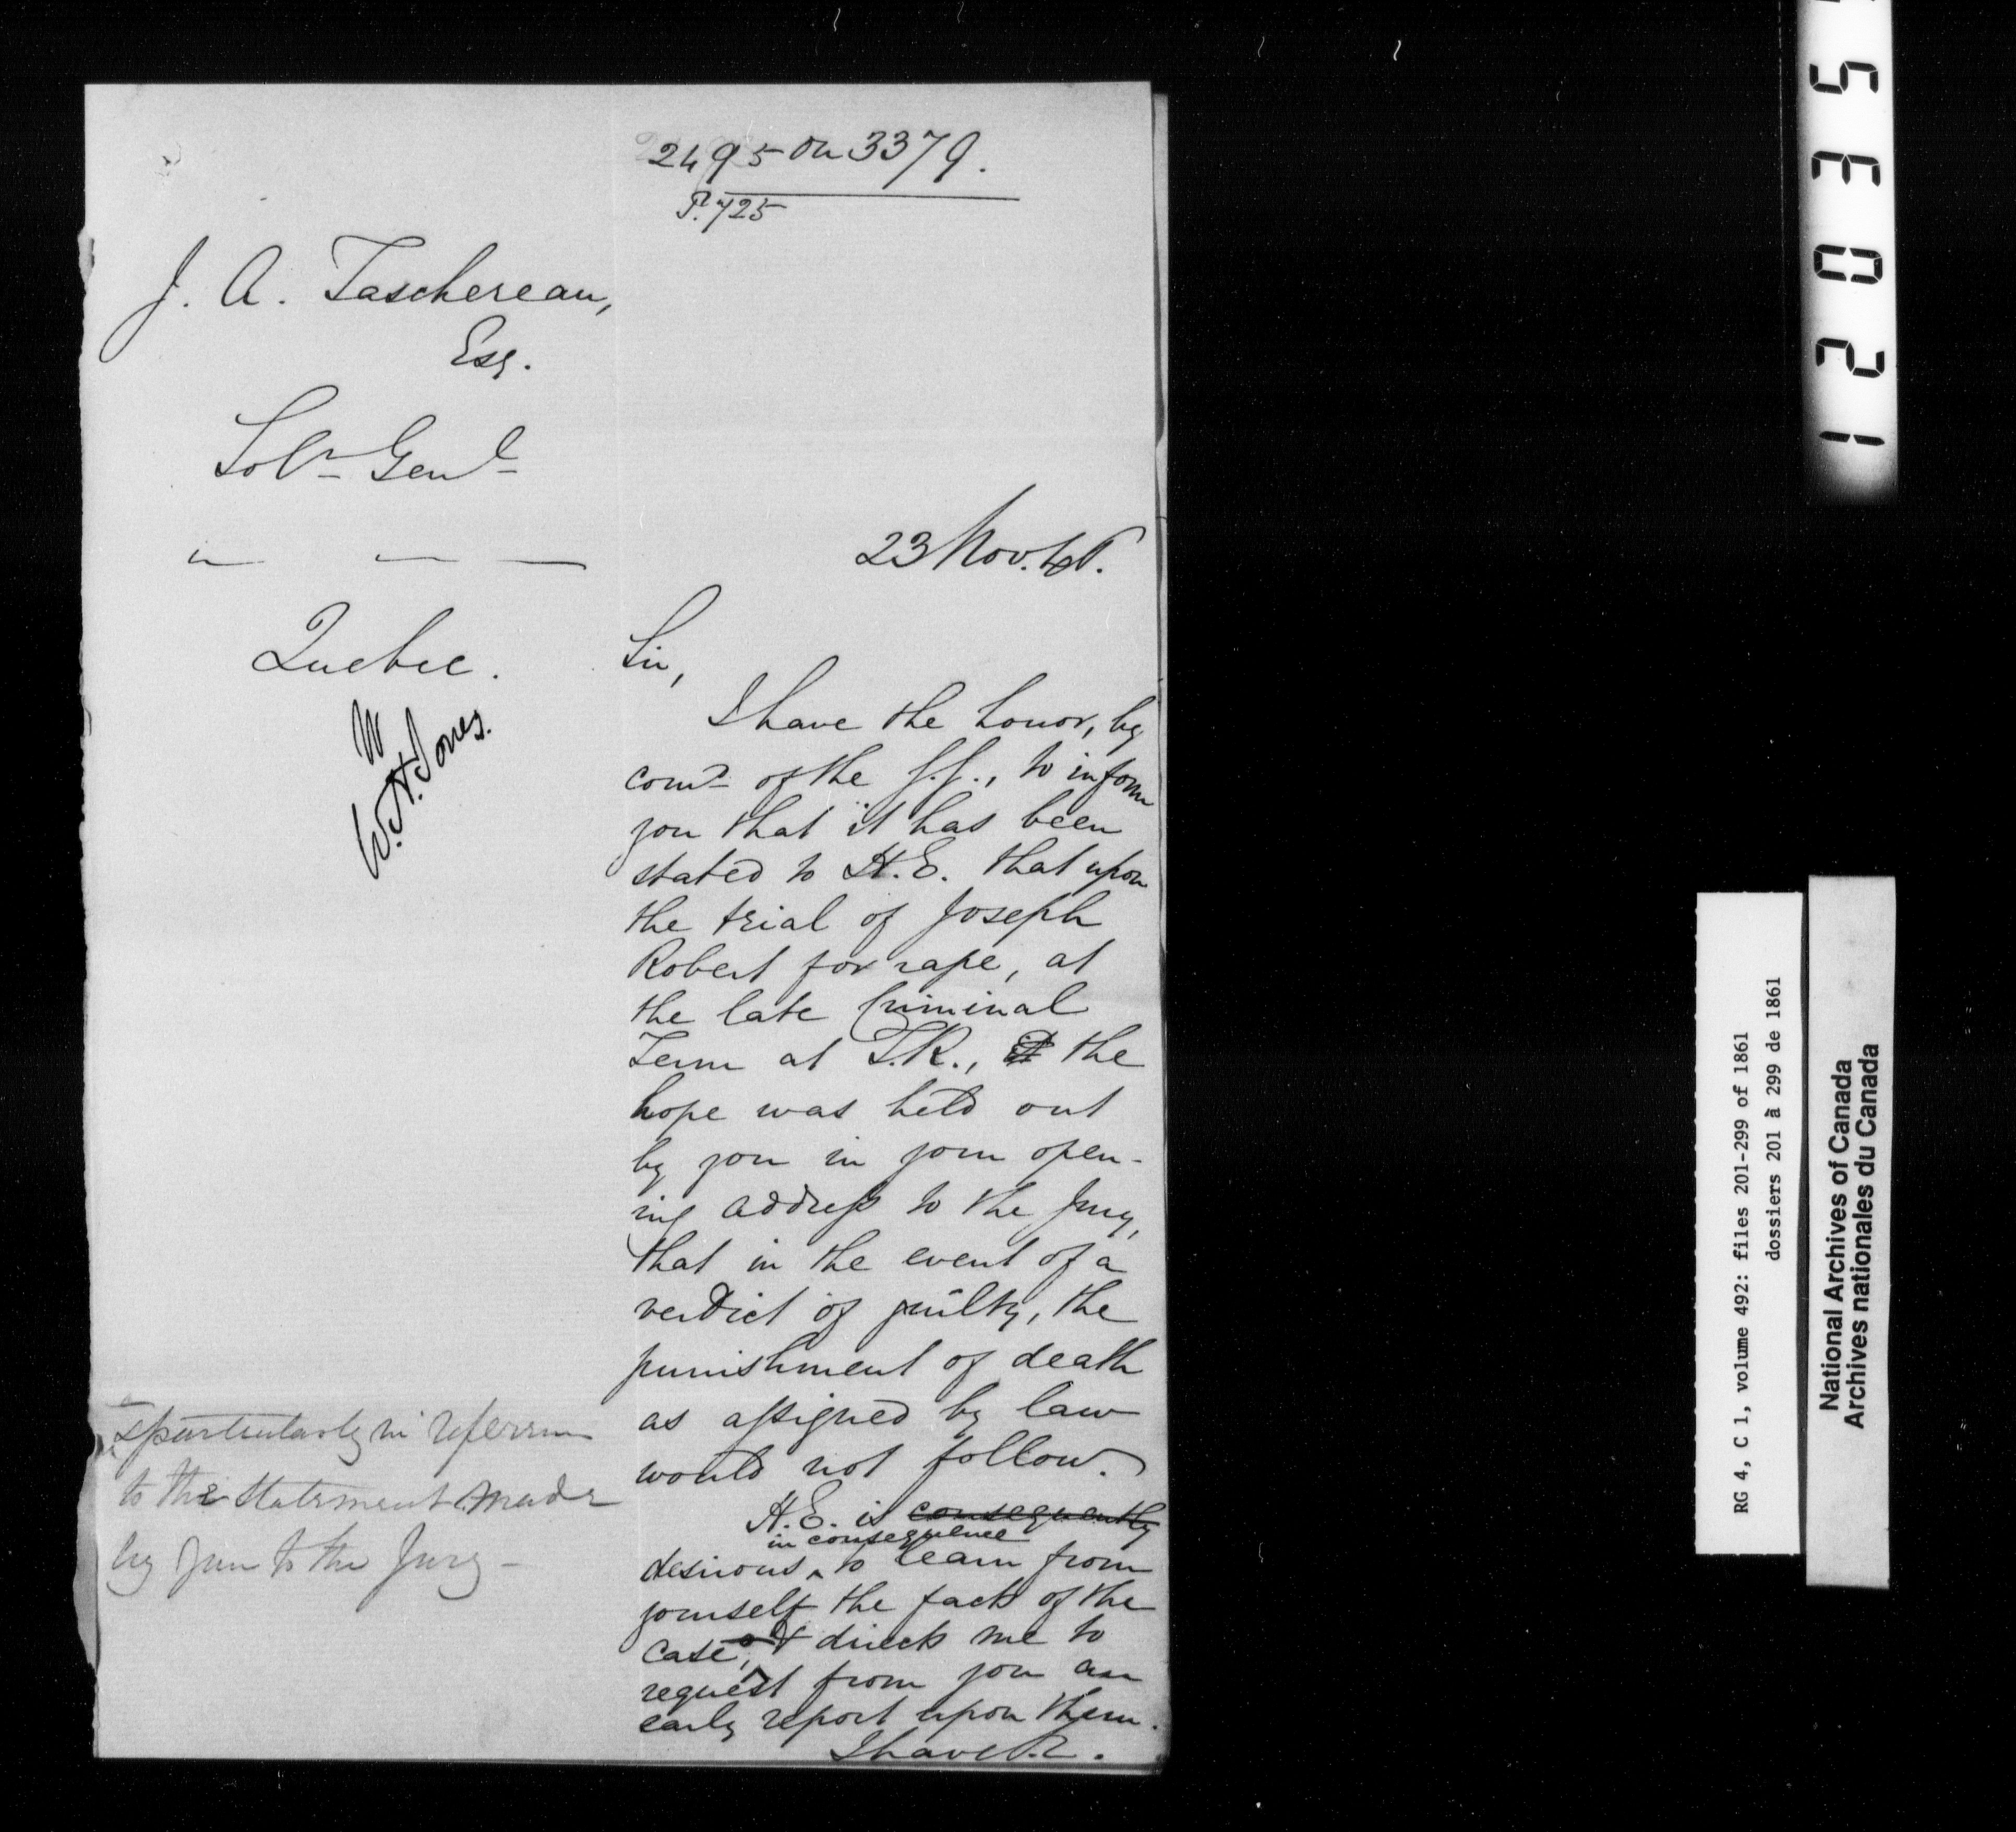 2495 on 3379.
P. 725
J. A. Taschereau,
Esq.
Solr Genl
Quebec.
W. H. Jones.
23 Nov.
Sir,
I have the honor, by
comd of the G.G., to inform
you that it has been
stated to H.E. that upon
the trial of Joseph
Robert for rape, at
the late Criminal
Term at T.R., the
hope was held out
by you in your open-
ing address to the Jury,
that in the event of a
verdict of guilty, the
punishment of death
as assigned by law
would not follow.
H.E. is consequently
in consequence
desirous ^ to learn from
yourself the facts of the
case, & directs me to
request from you an
early report upon them.
I have &c.
particularly in reference
to the statement made
by you to the Jury -
1 2 0 3 5
RG 4, C 1, volume 492: files 201-299 of 1861
dossiers 201 à 299 de 1861
National Archives of Canada
Archives nationales du Canada